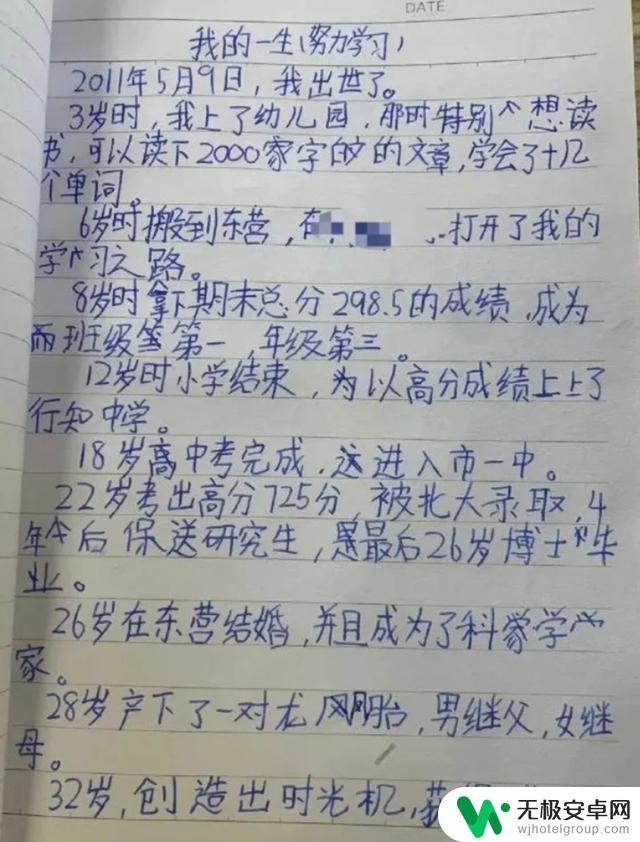 DATE
我的一生(努力学习)
2011年5月9日,我出世了。
3岁时,我上了幼儿园,那时特别个想读
书,可以读下2000家字的的文章,学会了十几
个单词。
6岁时搬到东营,在 打开了我的
学习之路。
8岁时拿下期末总分298.5的成绩,成为
班级第一,年级第三。
12岁时小学结束,为以高分成绩上上了
行知中学。
18岁高中考完成,进入市一中。
22岁考出高分725分,被北大录取,4
年后保送研究生,最后26岁博士毕
业。
26岁在东营结婚,并且成为了科学
家。
28岁产下了一对龙凤胎,男继父,女继
母。
32岁,创造出时光机,获
无极安卓网
wjhotelgroup.com